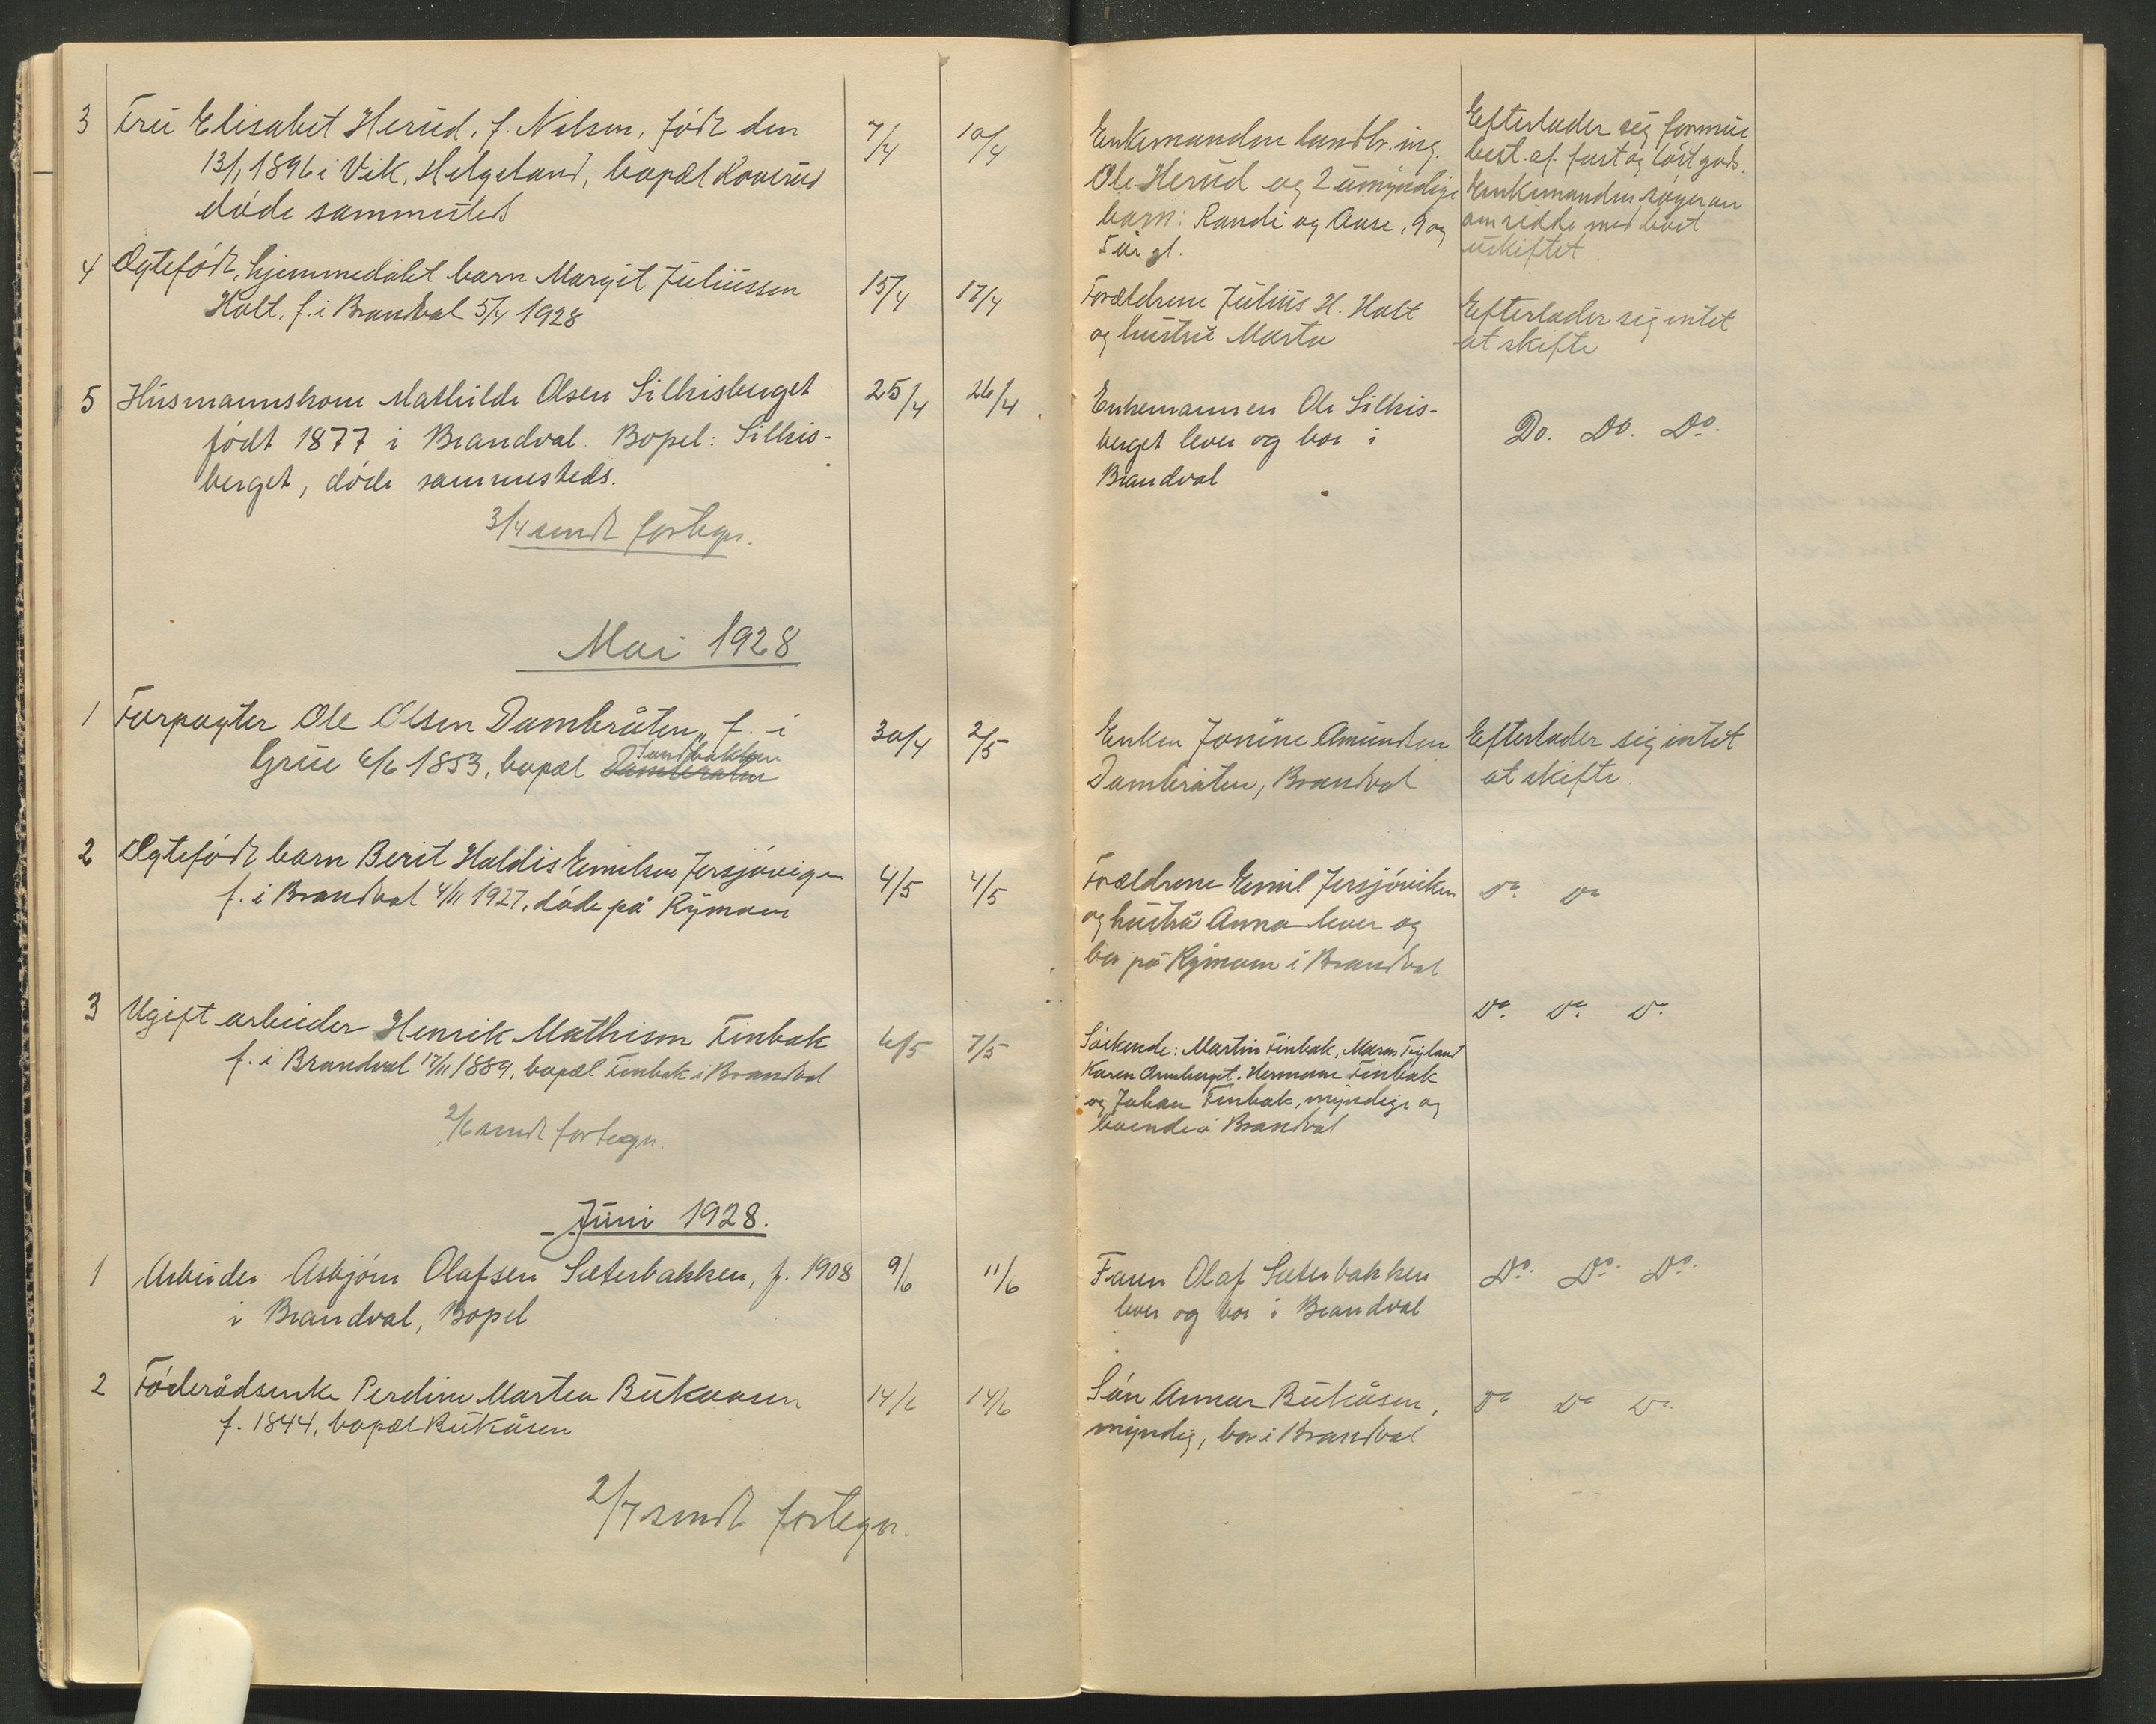 3 Fru Elisabet Herud, f. Nilsen, født den 7/4 10/4
13/1 1896 i Vik, Helgeland, bopæl Roverud
døde sammesteds
Enkemanden landbr. ing.
Ole Herud og 2 umyndige
barn: Randi og Aase, 9 og
5 år gl.
Efterlader sig formue
best. af fast og løst gods.
Enkemanden søger om
å sidde med boet
uskiftet.
4 Ægtefødt, hjemmedøbt barn Margit Juliussen 15/4 17/4
Holt, f. i Brandval 5/4 1928
Forældrene Julius H. Holt
og hustru Marta
Efterlader sig intet
at skifte
5 Husmannskone Mathilde Olsen Silkisberget 25/4 26/4
født 1877 i Brandval. Bopel: Silkis-
berget, døde sammesteds.
Enkemannen Ole Silkis-
berget lever og bor i
Brandval
Do. Do. Do.
3/4 sendt fortegn.
Mai 1928
1 Forpagter Ole Olsen Dambråten, f. i 30/4 2/5
Grue 6/6 1853, bopæl Dambråten Sandbakken
Enken Jonine Amundsen
Dambråten, Brandval
Efterlader sig intet
at skifte.
2 Ægtefødt barn Berit Haldis Emilsen Jersjøvigen 4/5 4/5
f. i Brandval 4/11 1927, døde på Rymoen
Forældrene Emil Jersjøviken
og hustru Anna lever og
bor på Rymoen i Brandval
Do Do
3 Ugift arbeider Henrik Mathisen Finbak 6/5 7/5
f. i Brandval 17/11 1889, bopæl Finbak i Brandval
Do. Do. Do.
Søskende: Martin Finbak, Maren
Karen Hermane Finbak
og Johan Finbak, myndige og
boende i Brandval
2/6 sendt fortegn.
Juni 1928.
1 Arbeider Asbjørn Olafsen Sæterbakken, f. 1908 9/6 11/6
i Brandval, Bopel
Faren Olaf Sæterbakken
lever og bor i Brandval
Do. Do. Do.
2 Føderådsenke Perdine Martea Bukaasen 14/6 14/6
f. 1844, bopæl Bukåsen
Søn Bukåsen,
myndig, bor i Brandval
Do Do Do.
2/7 sendt fortegn.